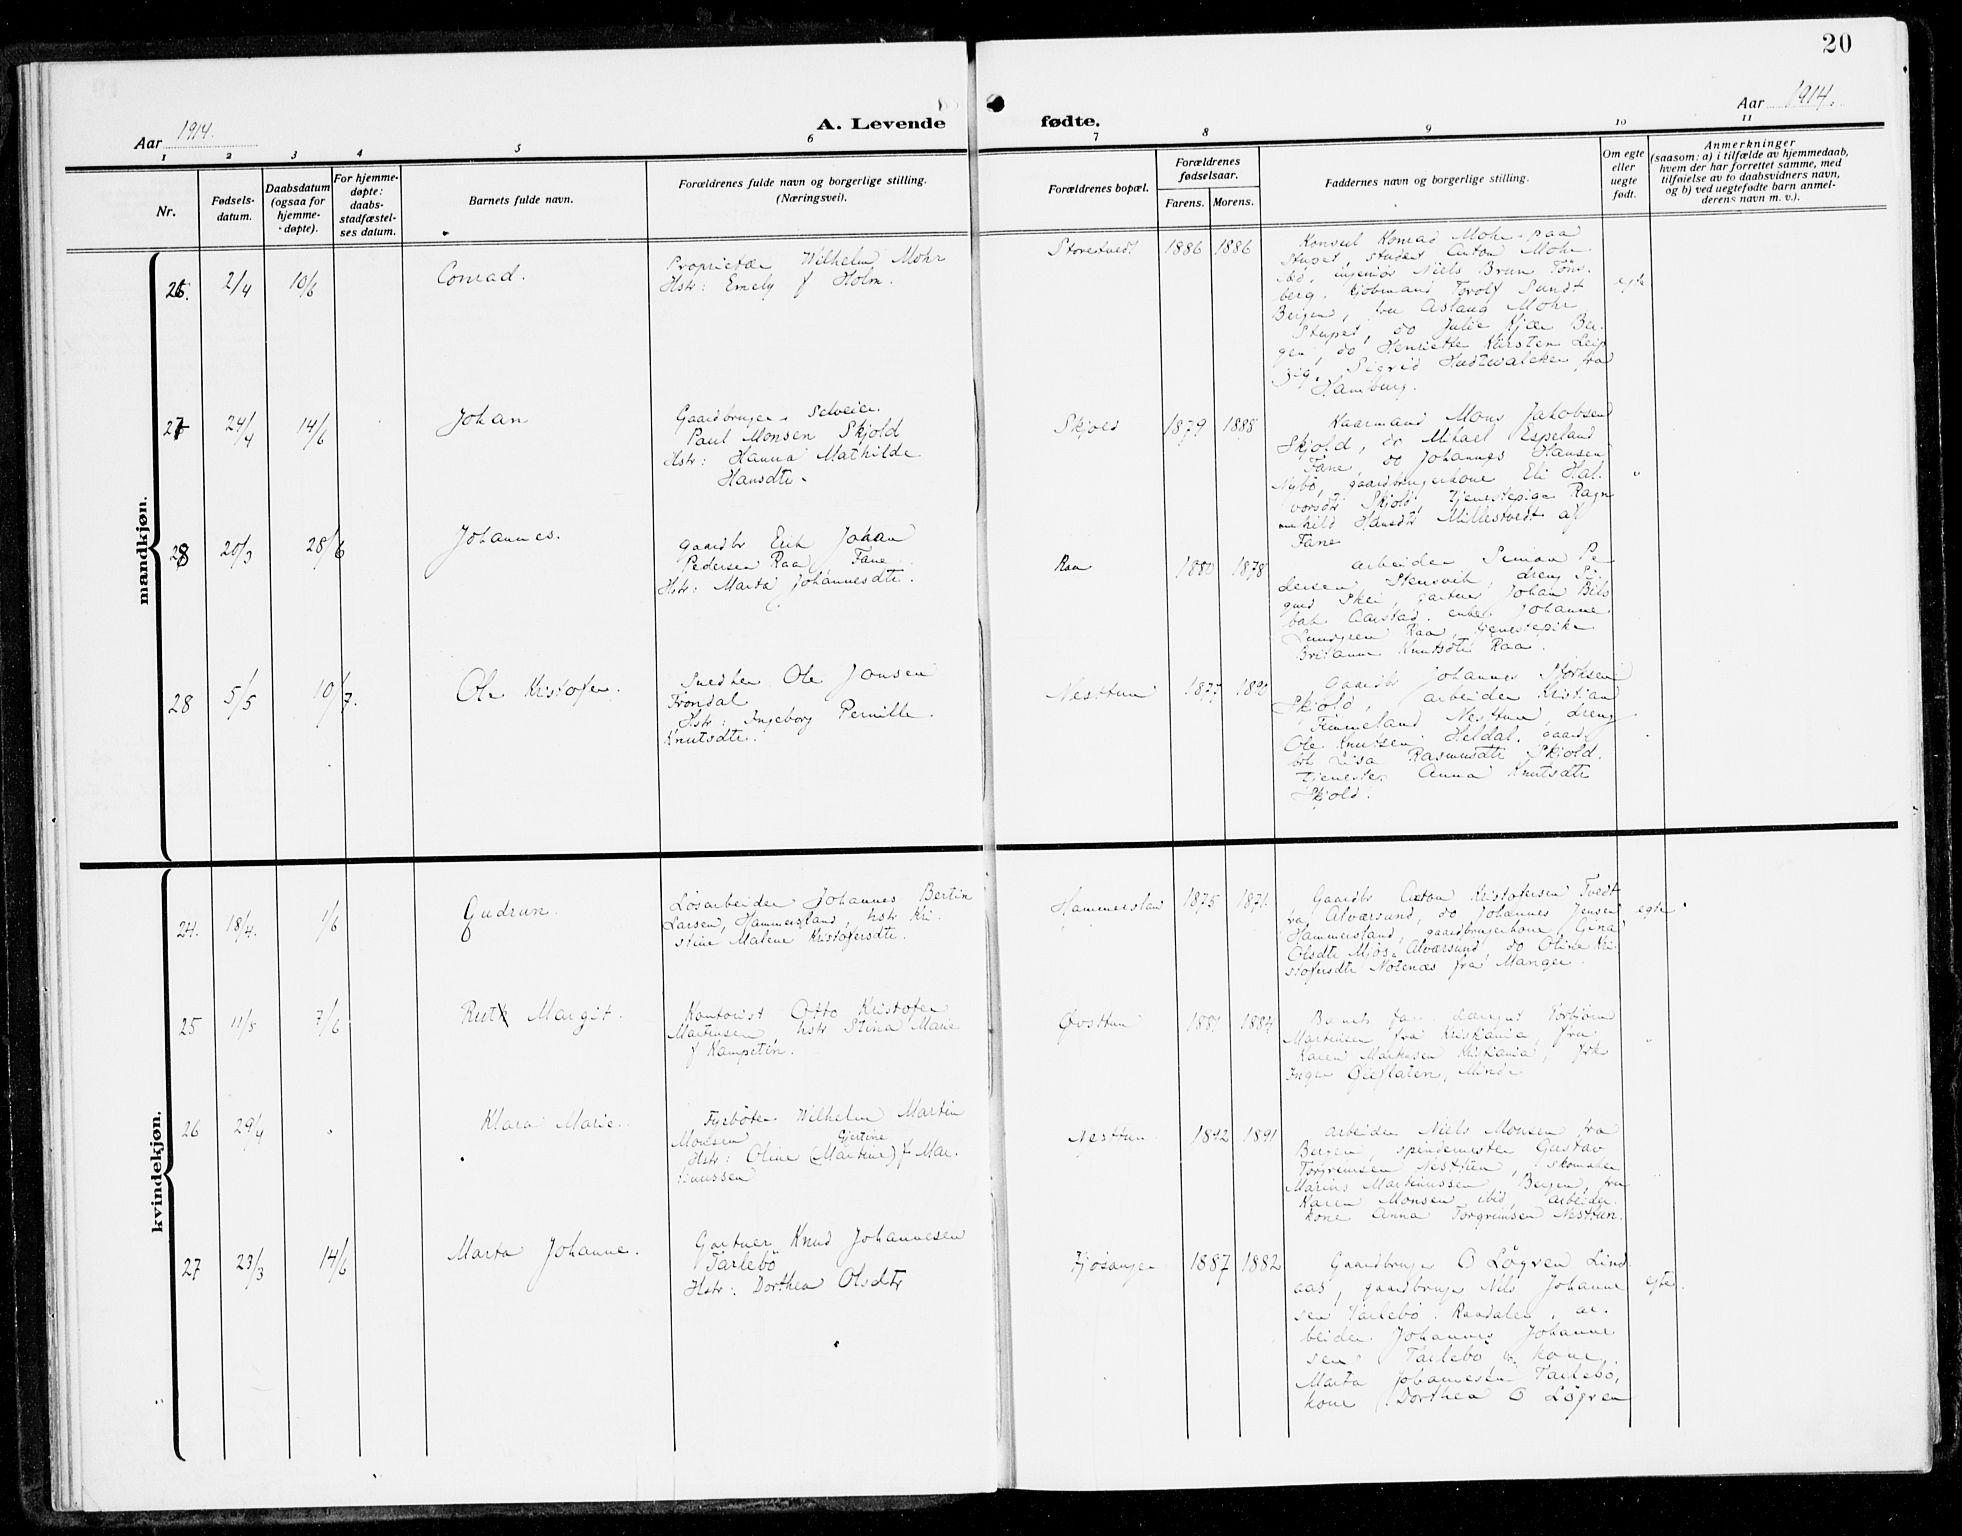 20
Aar 1914.
A. Levende
fødte.
Aar 1914.
1 2 3 4 5 6 7 8 9 10 11
Nr.
Fødsels-
datum.
Daabsdatum
(ogsaa for
hjemme-
døpte).
For hjemme-
døpte:
daabs-
stadfæstel-
ses datum.
Barnets fulde navn.
Forældrenes fulde navn og borgerlige stilling.
(Næringsvei).
Forældrenes bopæl.
Forældrenes
fødselsaar.
Farens. Morens.
Faddernes navn og borgerlige stilling.
Om egte
eller
uegte
født.
Anmerkninger
(saasom: a) i tilfælde av hjemmedaab,
hvem der har forrettet samme, med
tilføielse av to daabsvidners navn,
og b) ved uegtefødte barn anmel-
derens navn m. v.).
mandkjøn.
26. 2/4 10/6
Conrad.
Proprietær Wilhelm Mohr
Hstr: Emely f Holm.
Storetvedt 1886 1886
Konsul Konrad Mohr paa
Stupet, student Anton Mohr
ibd, ingeniør Niels Brun Töns-
berg, kjöbmand Torolf Sundt
Bergen, fru Aslaug Mohr
Stupet, do Julie Kjær Ber-
gen, do Henriette Kirsten Leip
zig, Sigrid Hudtwalcker fra
Hamburg.
egte
27 24/4 14/6
Johan
Gaardbruger Selveier
Paul Monsen Skjold
Hstr: Hanna Mathilde
Hansdtr.
Skjold 1879 1888
Kaarmand Mons Jakobsen
Skjold, do Mikael Espeland
Fane, do Johannes Hansen
Nybö, gaardbrugerkone Eli Hal-
vorsdtr Skjold, tjenestepige Ragn
hild Hansdtr Millestvedt af
Fane
"
28 20/3 28/6
Johannes.
gaardbr Erik Johan
Pedersen Raa, Fane
Hstr: Marta Johannesdtr.
Raa 1880 1878
arbeider Simon Pe
dersen Stensvik, dreng Si-
gurd Skei, gartner Johan Bils
bak Aarstad, enke Johanne
Lundgren Raa, tjenestepike
Britanne Knutsdtr Raa.
28 5/5 10/7.
Ole Kristofer.
Snedker Ole Jonsen
Trondal
Hstr: Ingeborg Pernille
Knutsdtr.
Nesttun 1877 1890
Gaardbr Johannes Storksen
Skjold, arbeider Kristian
Fimmeland Nesttun, dreng
Ole Knutsen Heldal, gaard-
brk Lisa Rasmusdtr Skjold.
tjenestep Anna Knutsdtr
Skjold.
kvindekjøn.
24. 18/4. 1/6
Gudrun.
Løsarbeider Johannes Bertin
Larsen, Hammersland, hstr Kri-
stine Malene Kristofersdtr.
Hammersland 1875 1871
Gaardbr Anton Kristofersen Tvedt
fra Alværsund, do Johannes Jensen
Hammersland, gaardbrugerkone Gina
Olsdtr Mjøs Alværsund do Oline Kri-
stofersdtr Notenæs fra Manger.
egte
25 11/5 7/6
Rut Margit.
Kontorist Otto Kristofer
Martinsen hstr Stina Marie
f Kampetin.
Øvsttun 1881 1884
Barnets far, Torbjörn
Martinsen fra Kristiania, fru
Karen Martinsen Kristiania, frk
Inger Øieflaten, Minde
"
26 29/4 "
Klara Marie.
Fyrböter Wilhelm Martin
Monsen
Gjertine
Hstr: Oline (Martine) f Mar-
tinussen
Nesttun. 1892 1891
arbeider Niels Monsen fra
Bergen, spindemester Gustav
Torgrimsen Nesttun, skomaker
Marius Martinussen, Bergen, fru
Karen Monsen ibid, arbeider-
kone Anna Torgrimsen Nesttun.
27 23/3 14/6
Marta Johanne.
Gartner Knud Johannesen
Tarlebö
Hstr: Dorthea Olsdtr
Fjøsanger 1887 1882
Gaardbruger O Lögren Lind
aas, gaardbruger Nils Johanne
sen Tarlebö, Raadalen, ar-
beider Johannes Johanne
sen Tarlebö, kone
Marta Johannesen Tarlebö,
kone Dorthea O Lögren
egte